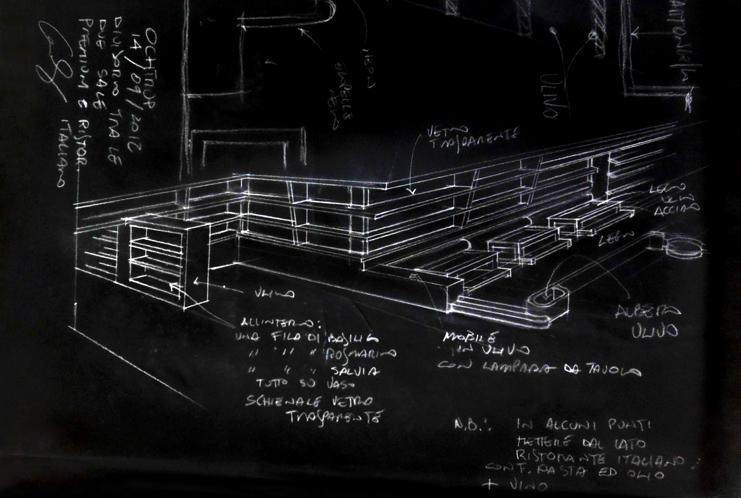 OCTTNUP
14/09/2012
DIVISORIO TRA LE
DUE SALE
PREMIUM E RISTOR.
ITALIANO
ULIVO
VETRO
TRASPARENTE
LEGNO
ULIVO
ALL'INTERNO:
UNA FILA DI BASILICO
" " " ROSMARINO
" " " SALVIA
TUTTO SU VASO
SCHIENALE VETRO
TRASPARENTE
MOBILE
IN ULIVO
CON LAMPADA DA TAVOLO
ALBERO
ULIVO
N.B.: IN ALCUNI PUNTI
METTERE DAL LATO
RISTORANTE ITALIANO:
CONF. PASTA ED OLIO
+ VINO